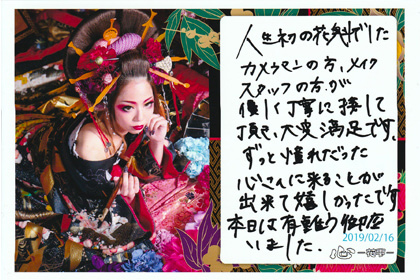 人生初の花魁でした
カメラマンの方、メイク
スタッフの方が
優しく丁寧に接して
頂き、大変満足です。
ずっと憧れだった
心さんに来ることが
出来て嬉しかったです
本日は有難う御座
いました.
2019/02/16
心 -花雫-